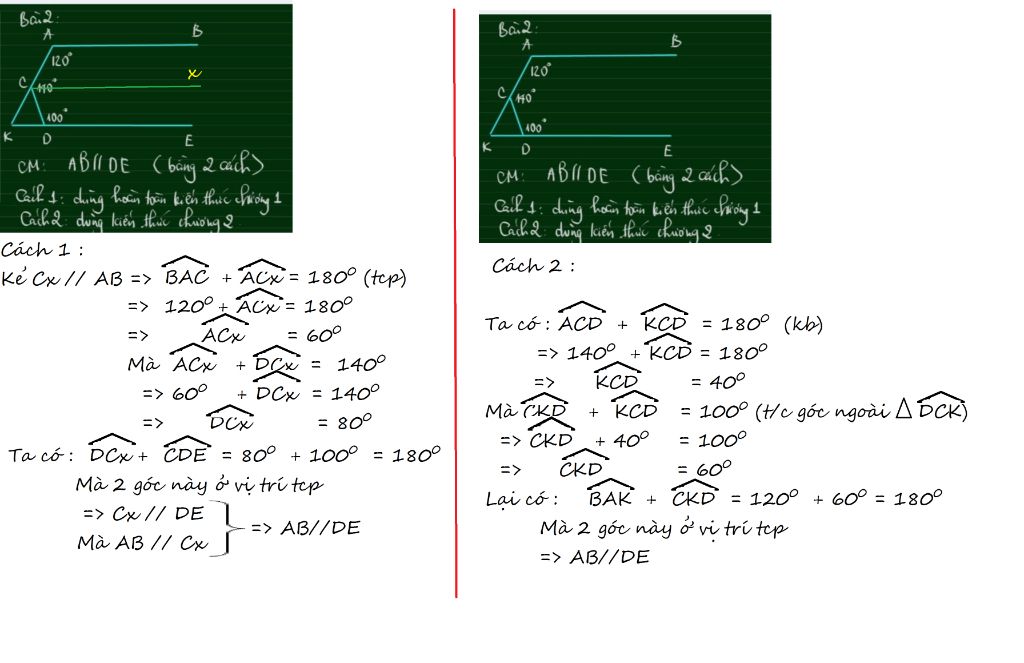 Bài 2:
A
B
120°
x
C
140°
100°
K
D
E
CM: AB // DE (bằng 2 cách)
Cách 1: dùng hoàn toàn kiến thức chương 1
Cách 2: dùng kiến thức chương 2
Cách 1 :
Kẻ Cx // AB => BAC + ACx = 180⁰ (tcp)
=> 120⁰ + ACx = 180⁰
=> ACx = 60⁰
Mà ACx + DCx = 140⁰
=> 60⁰ + DCx = 140⁰
=> DCx = 80⁰
Ta có : DCx + CDE = 80⁰ + 100⁰ = 180⁰
Mà 2 góc này ở vị trí tcp
=> Cx // DE
Mà AB // Cx
=> AB//DE
Bài 2:
A
B
120°
C
140°
100°
K
D
E
CM: AB // DE (bằng 2 cách)
Cách 1: dùng hoàn toàn kiến thức chương 1
Cách 2: dùng kiến thức chương 2
Cách 2 :
Ta có : ACD + KCD = 180⁰ (kb)
=> 140⁰ + KCD = 180⁰
=> KCD = 40⁰
Mà CKD + KCD = 100⁰ (t/c góc ngoài Δ DCK)
=> CKD + 40⁰ = 100⁰
=> CKD = 60⁰
Lại có : BAK + CKD = 120⁰ + 60⁰ = 180⁰
Mà 2 góc này ở vị trí tcp
=> AB//DE